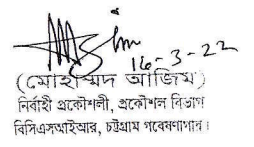 16-3-22
(মোহাম্মদ আজিম)
নির্বাহী প্রকৌশলী, প্রকৌশল বিভাগ
বিসিএসআইআর, চট্টগ্রাম গবেষণাগার।